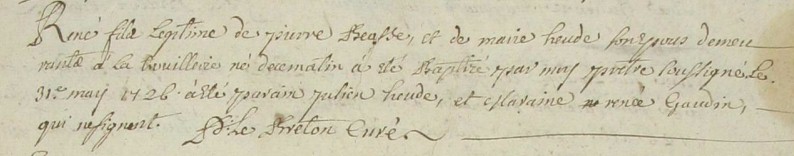 René fils legitime de pierre Beasse, et de marie heude son epous demeu
rante á la touillere né de ce matin á eté Baptizé par moy prêtre soussigné le
31e may 1726 á eté parain julien heude, et maraine renée Gaudin,
qui ne signent. Le Breton Curé